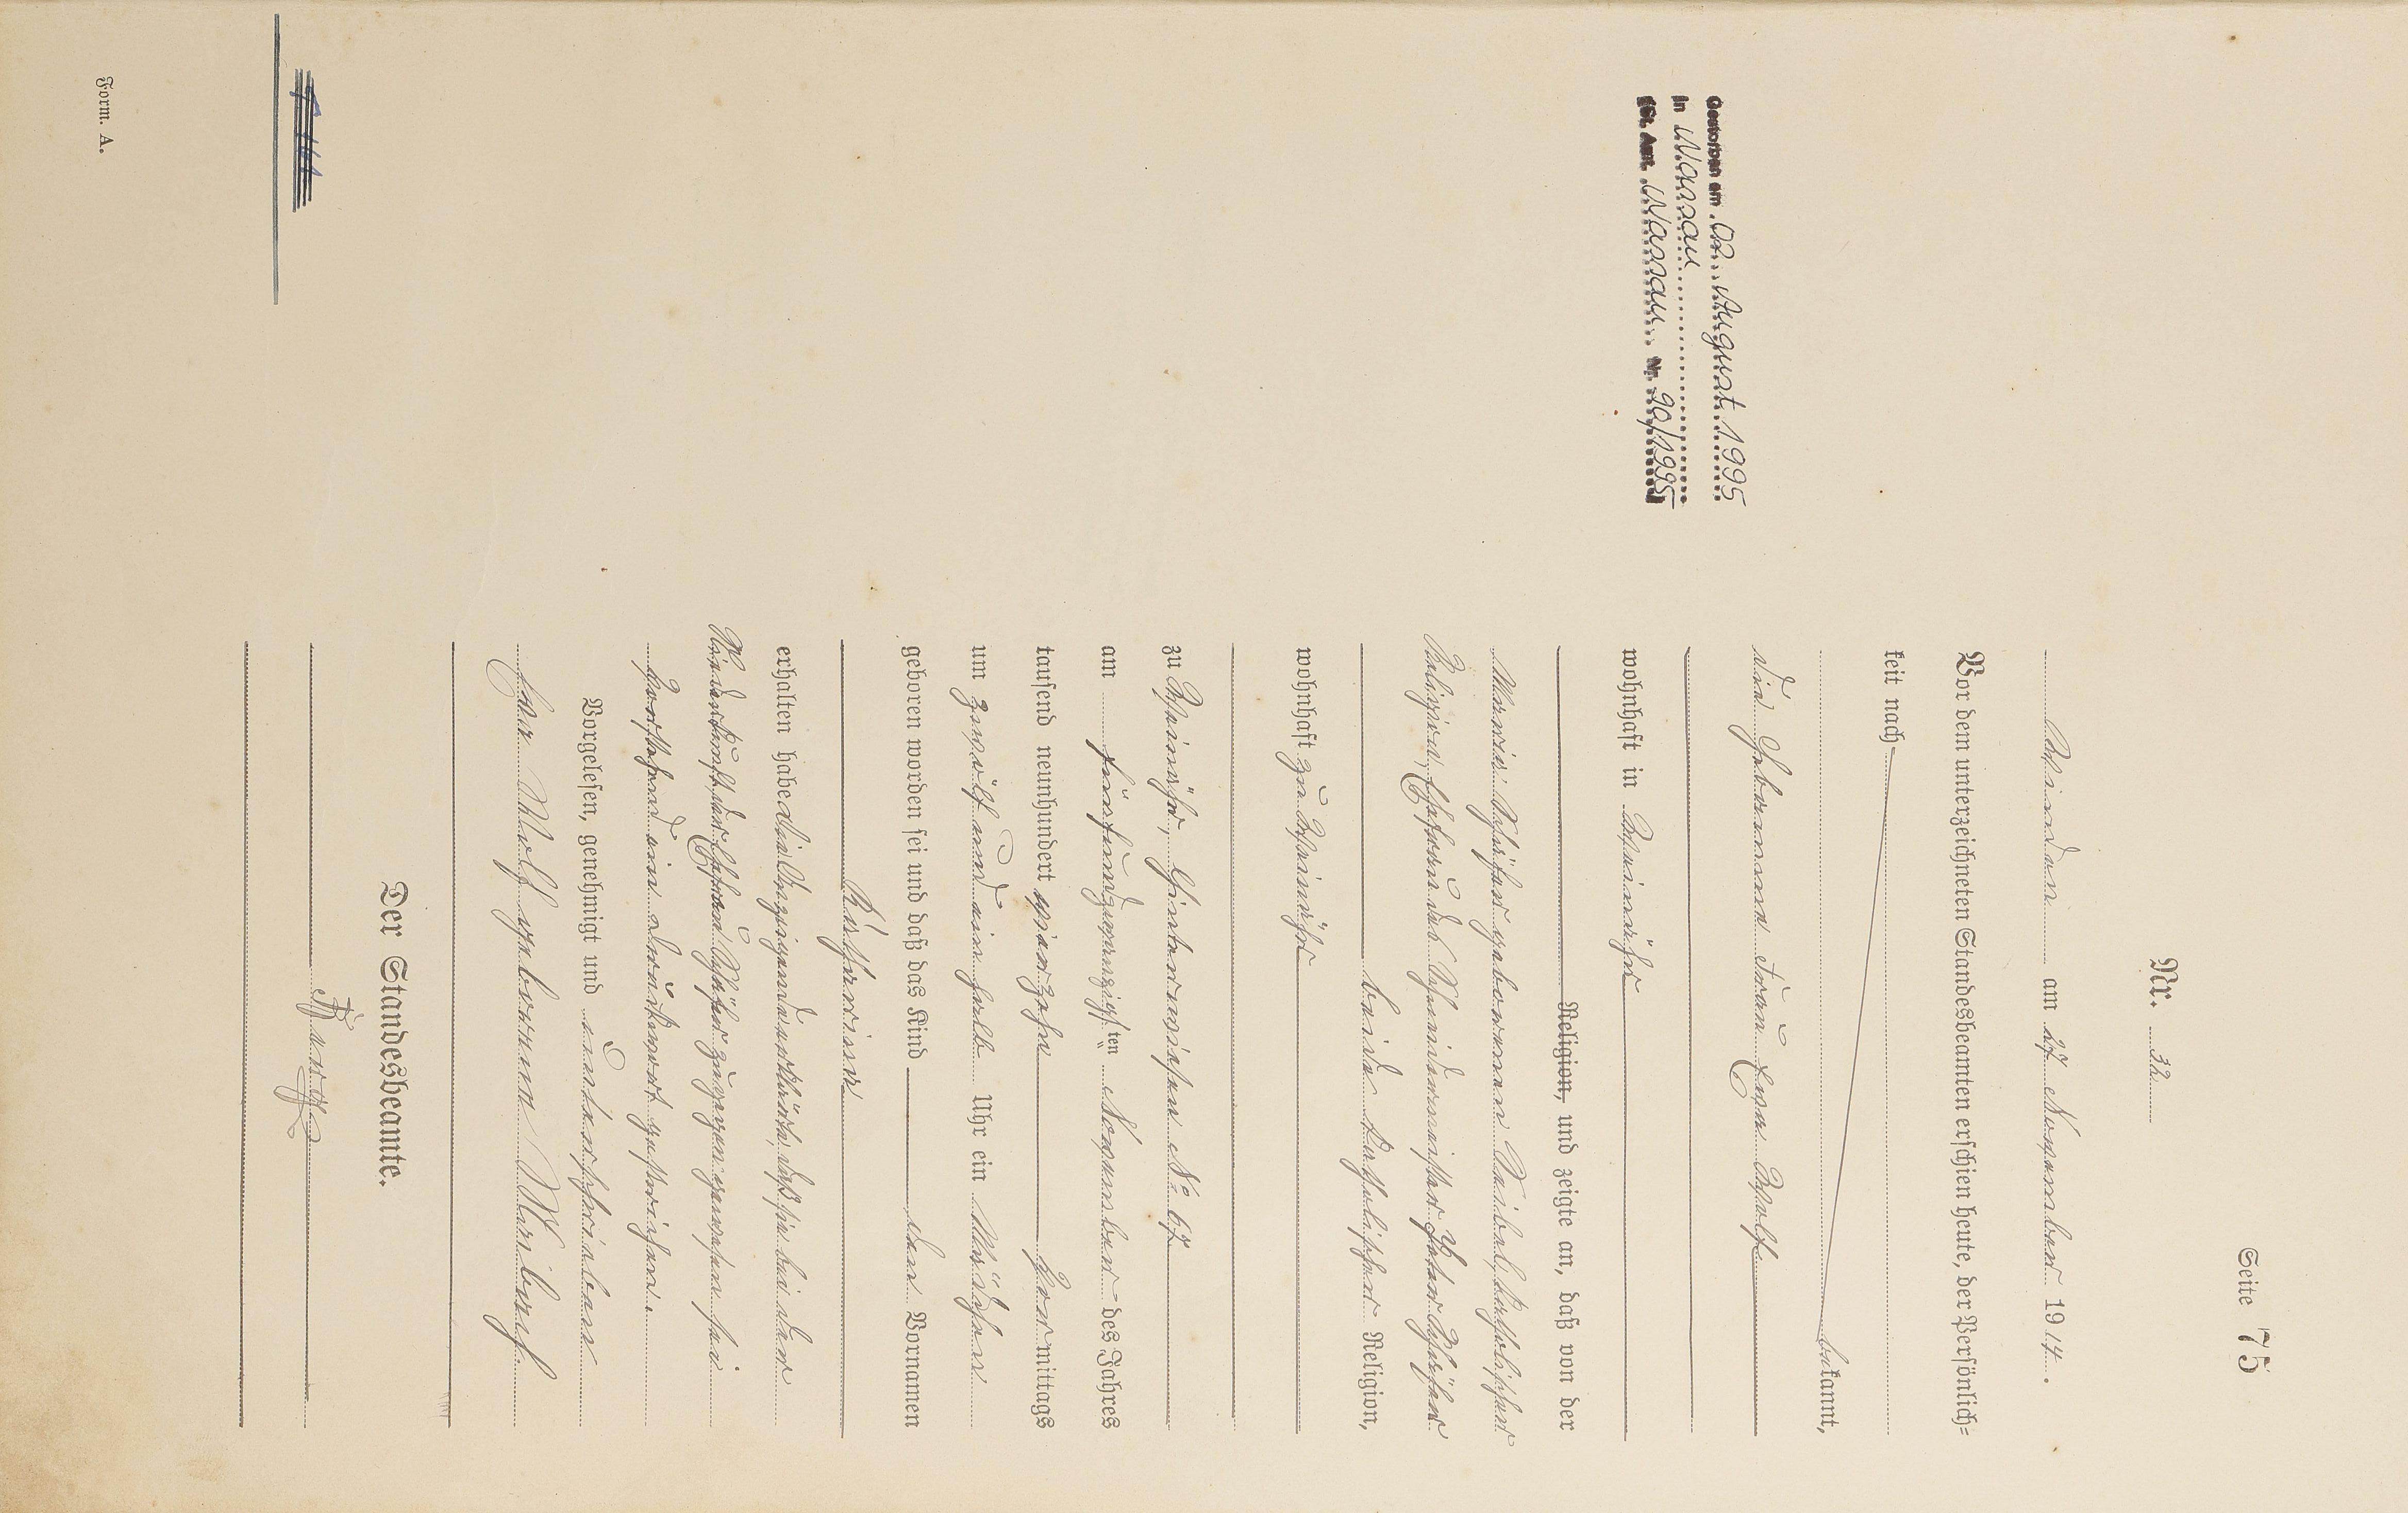 Seite 75
Nr. 32
Winden am 27 November 1914.
Vor dem unterzeichneten Standesbeamten erschien heute, der Persönlich-
keit nach
bekannt,
die Hebamme Frau Eva Wolf
wohnhaft in Weinähr
Religion, und zeigte an, daß von der
Maria Schäfer geborenen katholischer
Religion, Ehefrau des Schreinermeister Peter Schäfer
beide katholischer Religion,
wohnhaft zu Weinähr
zu Weinähr, Hinterwiesen No 67
am fünfundzwanzigsten ten November des Jahres
tausend neunhundert vierzehn Vormittags
um zwölf und ein halb Uhr ein Mädchen
geboren worden sei und daß das Kind den Vornamen
Katharina
erhalten habe die Anzeigende erklärte, daß sie bei der
Niederkunft der Ehefrau Schäfer zugegen gewesen sei
Vorstehend ein Druckwort gestrichen.
Vorgelesen, genehmigt und unterschrieben
Eva Wolf geborene
Der Standesbeamte.
Gestorben am 02. August 1995
in Nassau
StAmt Nassau Nr. 90/1995
Form. A.